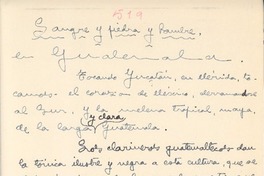 519
Sangre y piedra y hambre,
en Guatemala.
Tocando Yucatán, en Mérida, to-
camos el corazón de México, derramado
al Sur, y la melena tropical, maya,
y clara
de la larga Guatemala.
Los clarineros guatemaltecos dan
la tónica ilustre y negra a esta cultura, que se